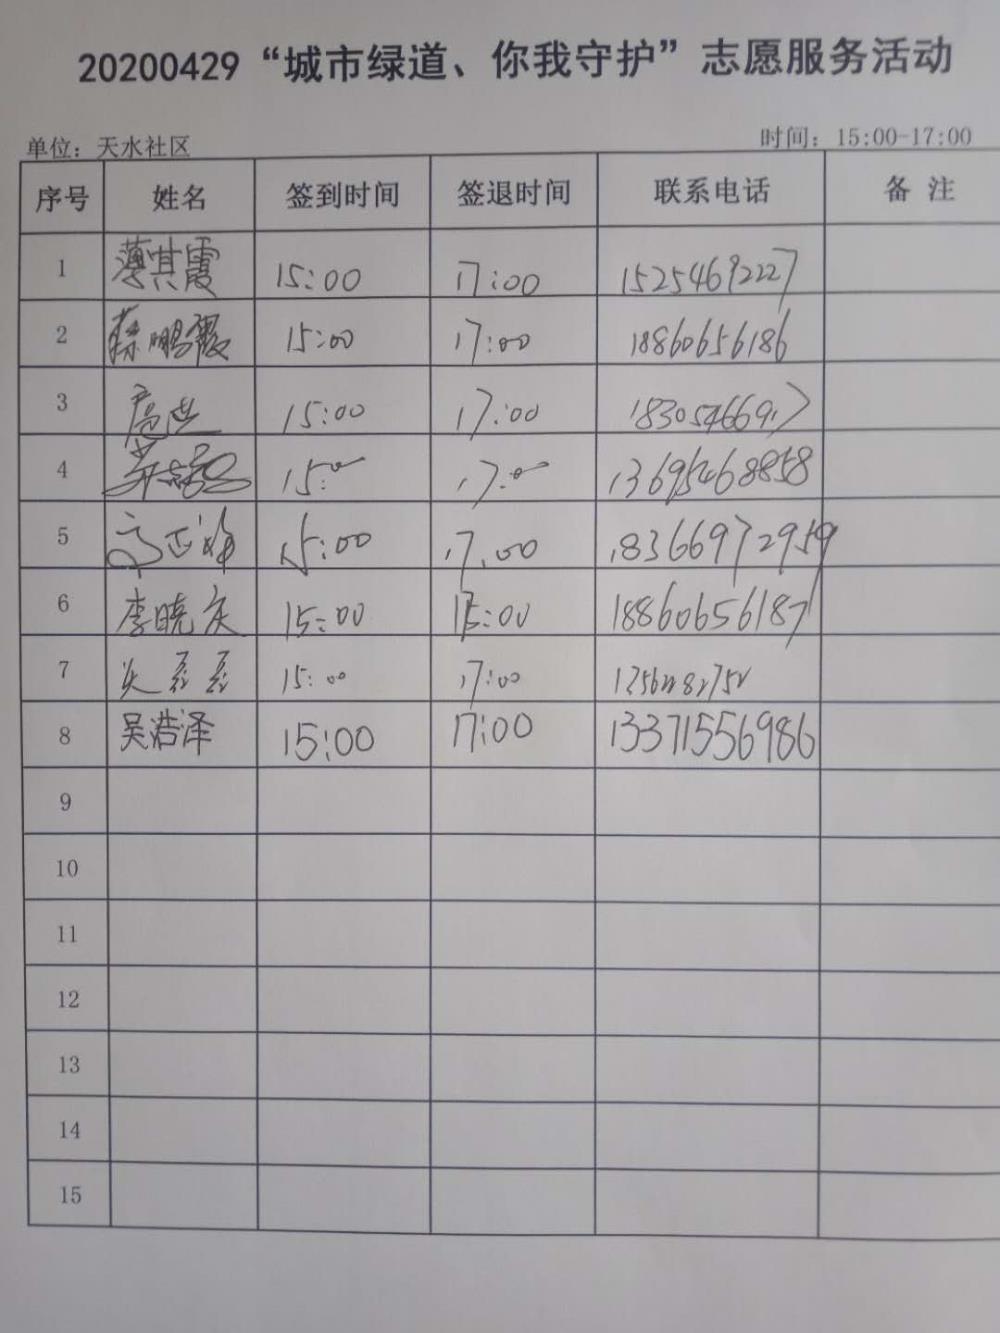 20200429“城市绿道、你我守护”志愿服务活动
单位：天水社区 时间：15:00-17:00
序号 姓名 签到时间 签退时间 联系电话 备 注
1 薄其霞 15:00 17:00 15254692227
2 蔡鹏霞 15:00 17:00 18860656186
3 15:00 17:00
4 15:00 17:00 13695468858
5 15:00 17:00 18366972959
6 李晓庆 15:00 15:00 18860656187
7 15:00 17:00
8 吴浩泽 15:00 17:00 13371556986
9
10
11
12
13
14
15